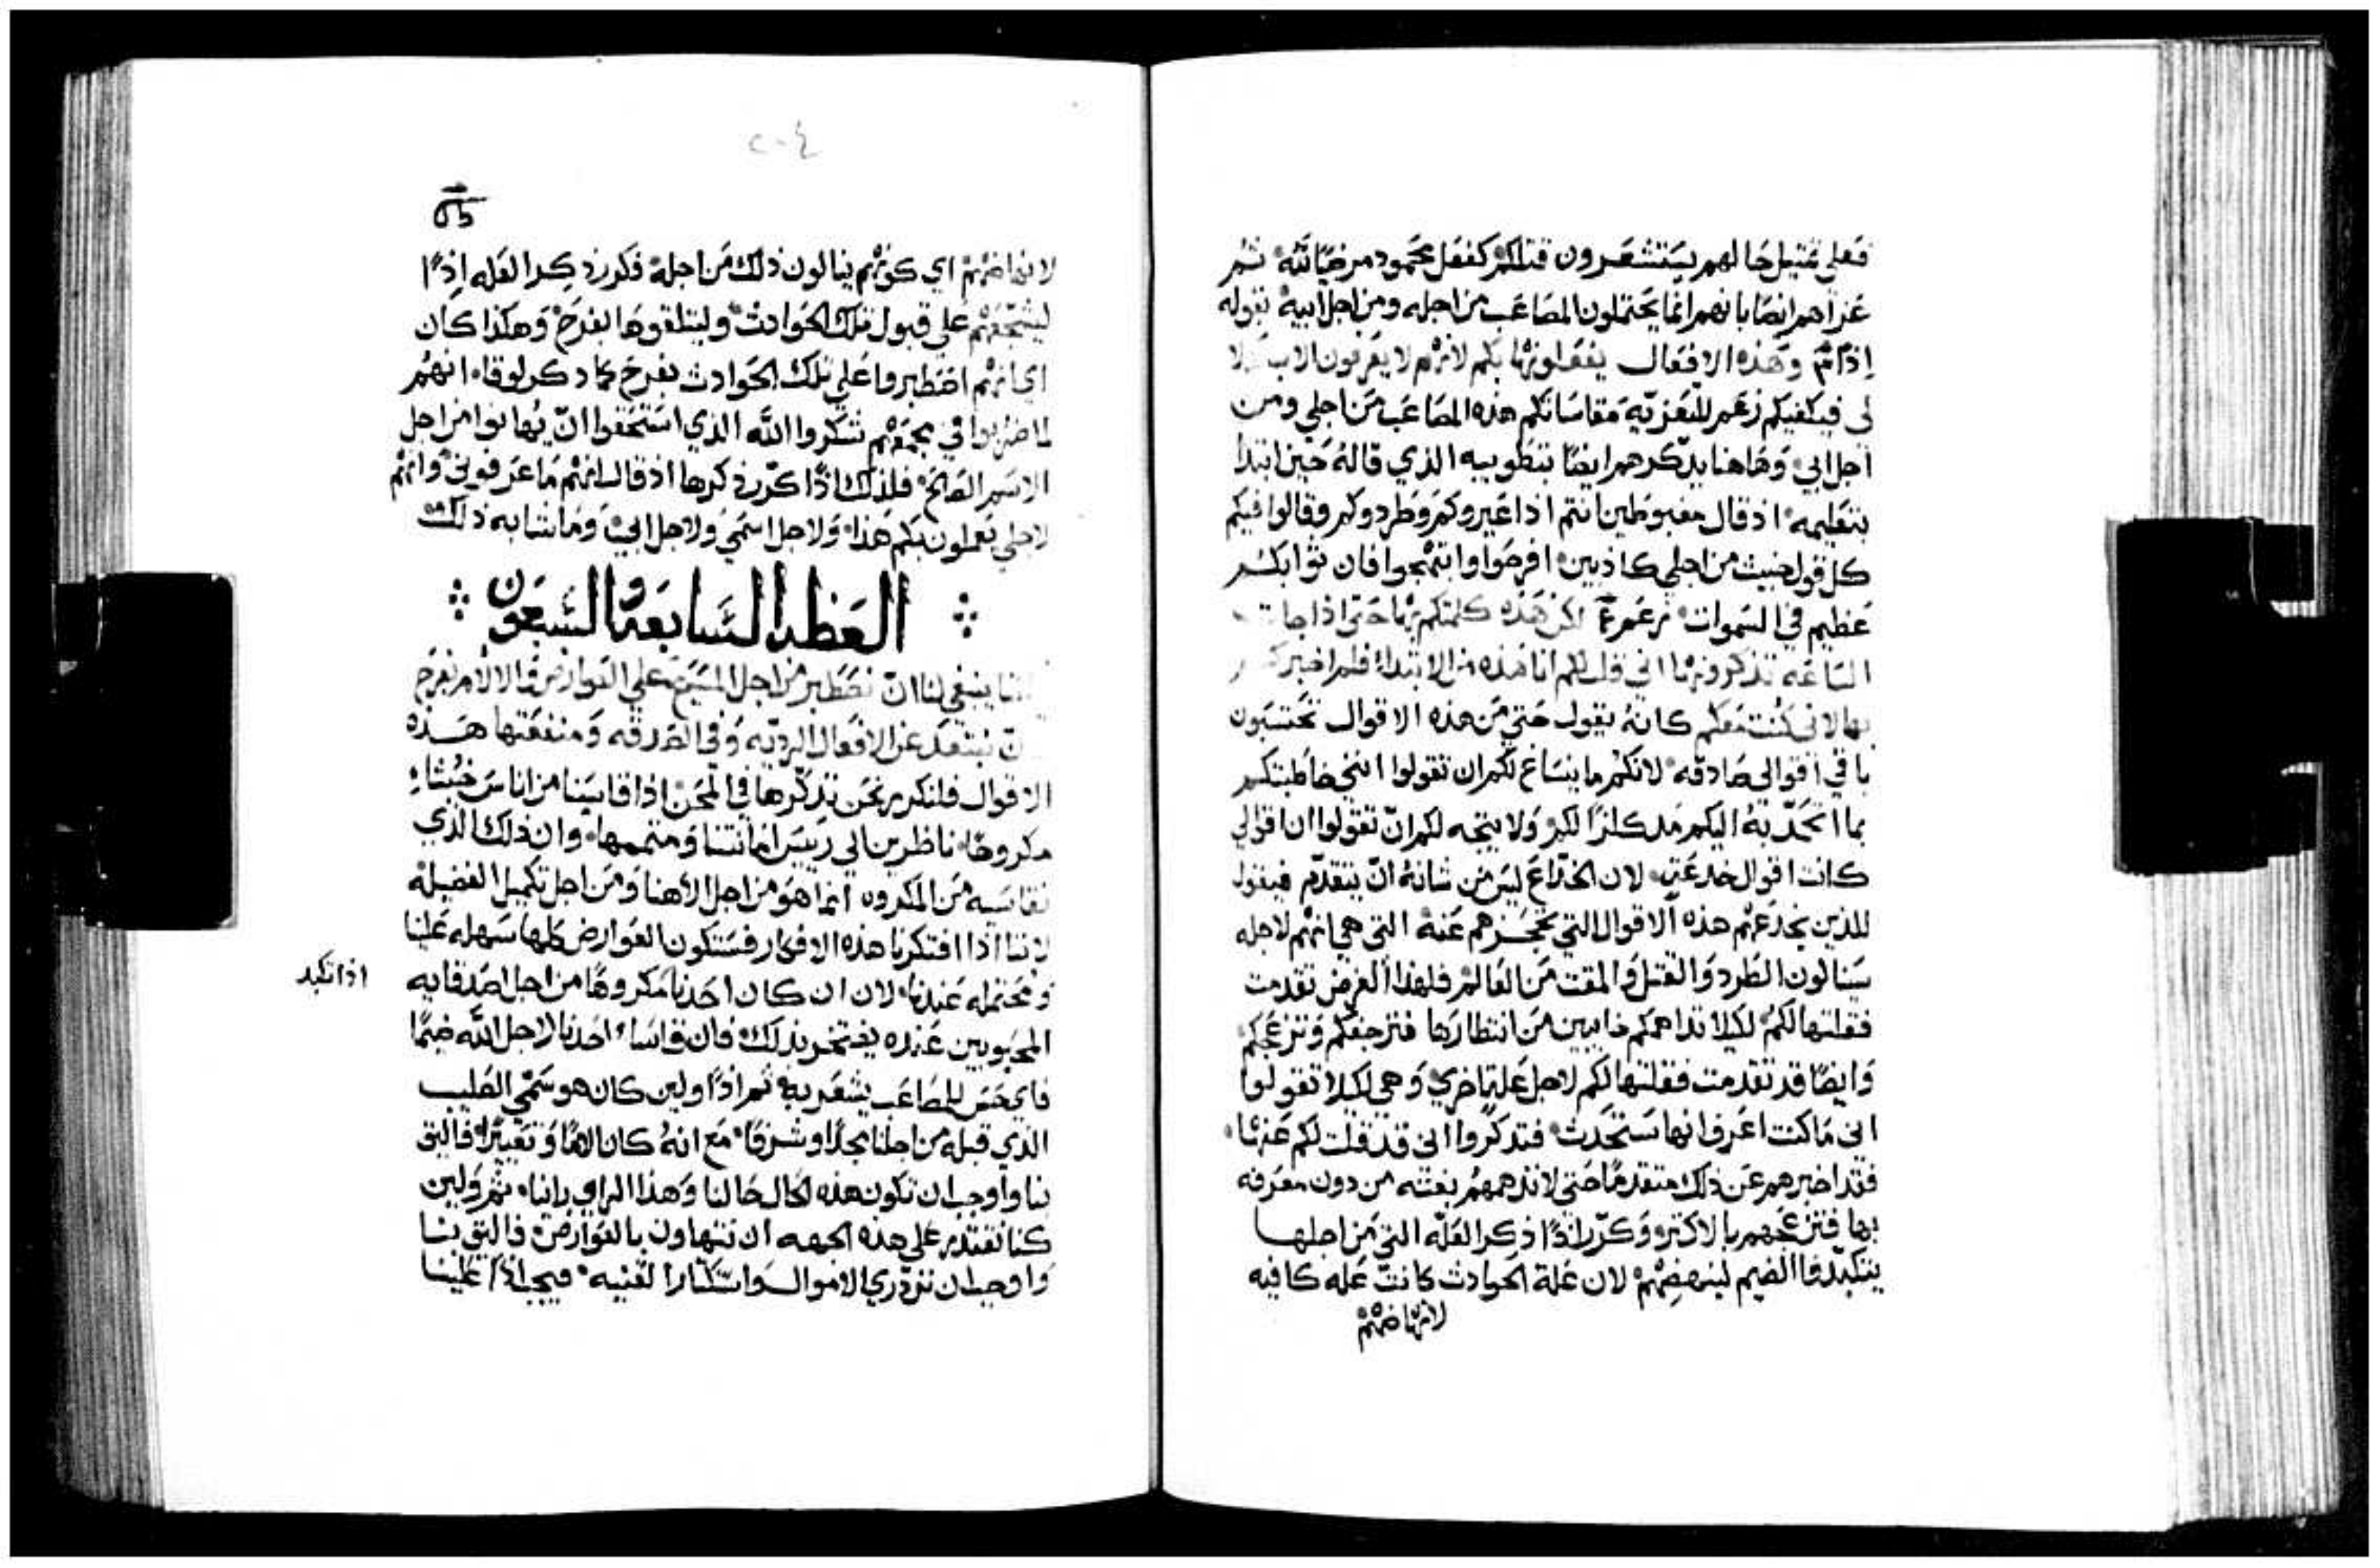 فعلى تمثيل حالهم يستشعرون قتلكم كفعل محمود مرضيًا لله ثم
عزاهم ايضًا بانهم انما يحتملون المصاعب من اجله ومن اجل ابيه بقوله
اذًا وهذه الافعال يفعلونها بكم لانهم لا يعرفون الاب ولا
لى فيكفيكم زعم للتعزيه مقاساتكم هذه المصاعب من اجلي ومن
اجل ابي وهاهنا يذكرهم ايضًا بتطويبه الذي قاله حين ابتدا
بتعليمه اذ قال مغبوطين انتم اذا عيروكم وطردوكم وقالوا فيكم
كل قول خبيث من اجلي كاذبين افرحوا وابتهجوا فان ثوابكم
عظيم في السموات لكن هذه كلمتكم بها حتى اذا جات
الساعه تذكرونها اني قلت لكم انا هذه من الابتداء فلم اخبركم
بها لاني كنت معكم كانه يقول حتى من هذه الاقوال تحتسبون
باقي اقوالي صادقه لانكم ما ينساغ لكم ان تقولوا انني خاطبتكم
بما لكم ولا يتجه لكم ان تقولوا ان اقوالي
كانت اقوال خدعتي لان الخداع ليس من شانه ان يتقدم فيقول
للذين يخدعهم هذه الاقوال التي تحجزهم عنه التي هي انهم لاجله
سينالون الطرد والقتل والمقت من العالم فلهذا الغرض تقدمت
فقلتها لكم لكيلا تداهمكم خايبين من انتظارها فترجفكم وتزعجكم
وايضًا قد تقدمت فقلتها لكم لاجل علة اخري وهي لكيلا تقولوا
اني ما كنت اعرف انها ستحدث فتذكروا اني قد قلت لكم عنها
فقد اخبرهم عن ذلك متقدمًا حتى لا تدهمهم بغته من دون معرفه
بها فتزعجهم بالاكثر وكرر اذًا ذكر العله التي من اجلها
يتكبدوا الضيم لينهضهم لان علة الحوادث كانت عله كافيه
لانهاضهم
٢٠٤
لانهاضهم اي كونهم ينالون ذلك من اجله فكرر ذكر العله اذًا
ليشجعهم على قبول تلك الحوادث وليتلقوها بفرح وهكذا كان
اي انهم اصطبروا على تلك الحوادث بفرح كما ذكر لوقا انهم
لما ضربوا في مجمعهم شكروا الله الذي استحقوا ان يهانوا من اجل
الاسم الصالح فلذلك اذًا كرر ذكرها اذ قال انهم ما عرفوني وانهم
لاجلي يعملون بكم هذا ولاجل اسمي ولاجل ابي وما شابه ذلك
العظه السابعه والسبعون
اننا ينبغي لنا ان نصطبر من اجل المسيح على العوارض والالام بفرح
وان نبتعد عن الافعال الرديه وفي الصدقه ومنفعتها هذه
الاقوال فلنكن نحن نذكرها في المحن اذا قاسينا من اناس خبثاء
مكروهًا ناظرين الي رييس امانتنا ومتممها وان ذلك الذي
نقاسيه من المكروه انما هو من اجل الاهنا ومن اجل تكميل الفضيله
لاننا اذا افتكرنا هذه الافكار فستكون العوارض كلها سهله علينا
ومحتمله عندنا لان ان كان احدنا مكروهًا من اجل اصدقايه
اذا تكبد
المحبوبين عنده يفتخر بذلك فان قاسا احدنا لاجل الله ضيمًا
فاي حس للمصاعب يشعر به ثم اذًا ولين كان هو سمي الصليب
الذي قبله من اجلنا مجدًا وشرفًا مع انه كان لعنًا وتعييرًا فاليق
بنا واوجب ان تكون هذه الحال حالنا وهذا الراي راينا ثم ولين
كنا نقتدر على هذه الجهه ان نتهاون بالعوارض فاليق بنا
واوجب ان نزدري الاموال واستكثار القنيه فيجب اذًا علينا